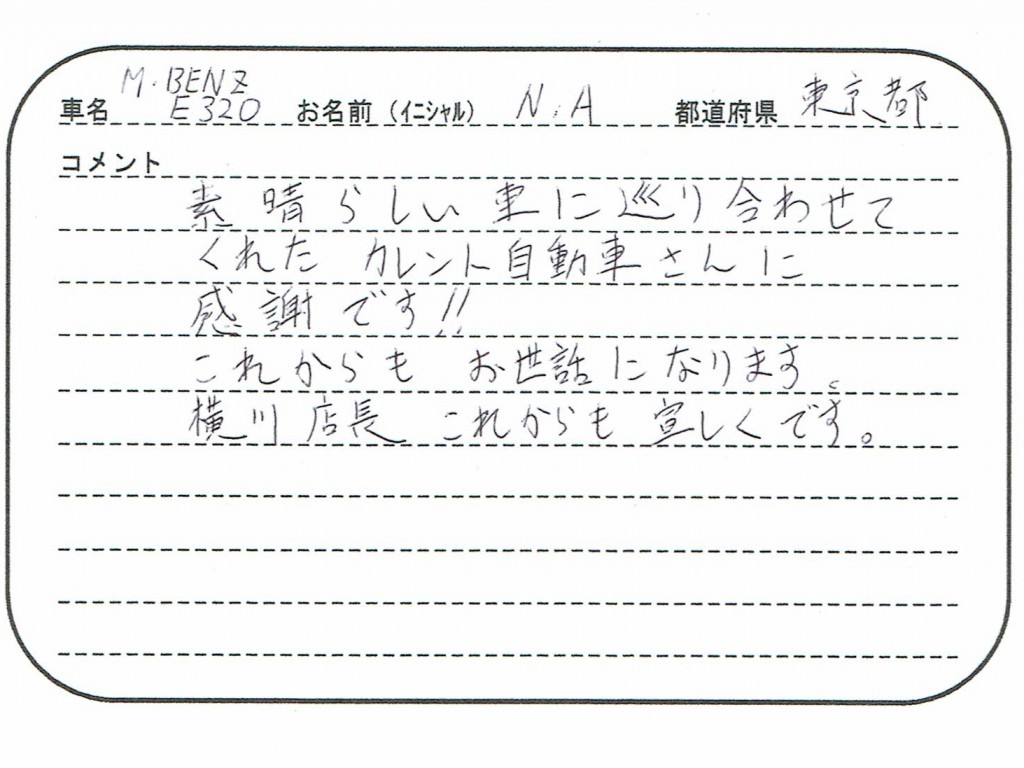 M.BENZ
車名 E320 お名前（イニシャル） N.A 都道府県 東京都
コメント
素晴らしい車に巡り合わせて
くれた カレント自動車さんに
感謝です!!
これからも お世話になります。
横川店長 これからも 宜しくです。